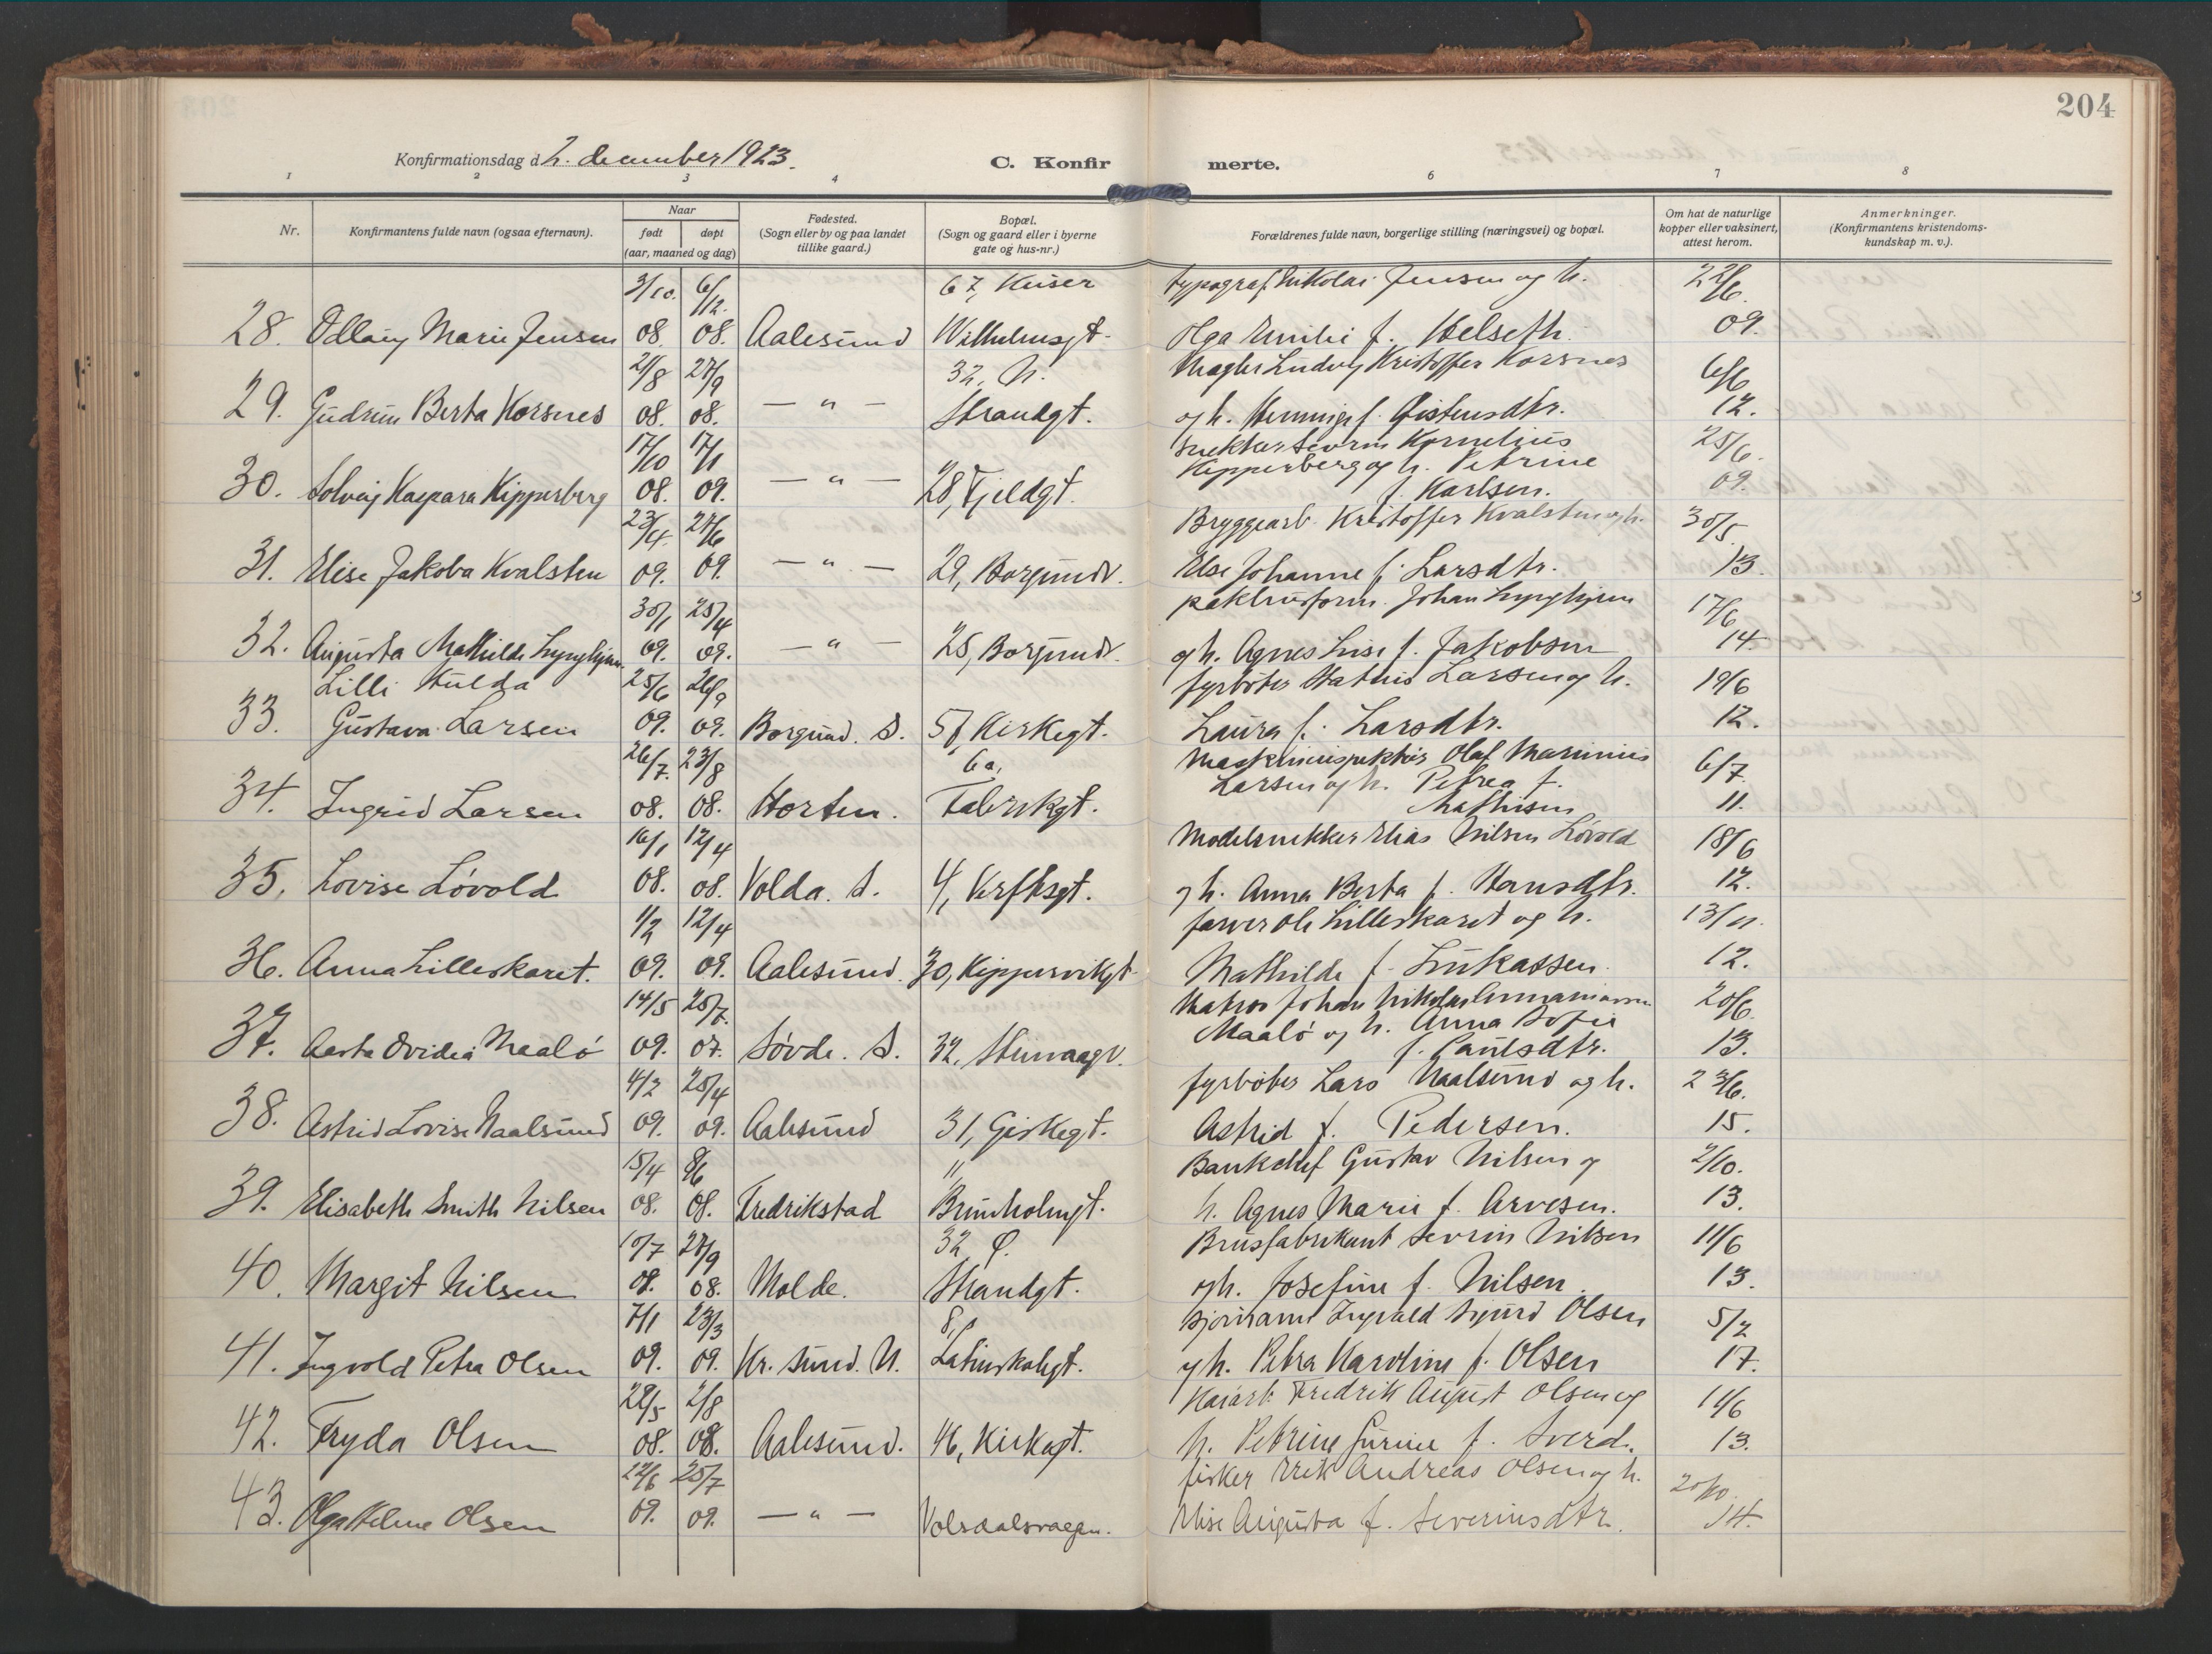 204
Konfirmationsdag d. 2. december 1923.
C. Konfirmerte.
1 2 3 4 6 7 8
Nr.
Konfirmantens fulde navn (ogsaa efternavn).
Naar
født døpt
(aar, maaned og dag)
Fødested.
(Sogn eller by og paa landet
tillike gaard.)
Bopæl.
(Sogn og gaard eller i byerne
gate og hus-nr.)
Forældrenes fulde navn, borgerlige stilling (næringsvei) og bopæl.
Om hat de naturlige
kopper eller vaksinert,
attest herom.
Anmerkninger.
(Konfirmantens kristendoms-
kundskap m. v.).
3/10. 6/12. 67, Keiser typograf Nikolai Jensen og h. 22/6.
28. Odlaug Marie Jensen 08. 08. Aalesund Wilhelmsgt. Olga Emilie f. Helseth. 09.
21/8 27/9 32, N. Mægler Ludvig Kristoffer Korsnes 6/6
29. Gudrun Berta Korsnes 08. 08. — " — Strandgt. og h. Henninge f. Østensdtr. 12.
17/10 17/1 snekker Severin Kornelius 25/6.
Kipperberg og h. Petrine
30. Solveig Kaspara Kipperberg 08. 09. — " — 28, Fjeldgt. f. Karlsen. 09.
23/4. 27/6 Bryggearb. Kristoffer Kvalsten og h. 30/5.
31. Elise Jakoba Kvalsten 09. 09. — " — 29, Borgundv. Else Johanne f. Larsdtr. 13.
30/1 25/4 pakhusform. Johan Lynghjem 17/6
32. Augusta Mathilde Lynghjem. 09. 09. — " — 25, Borgundv. og h. Agnes Lise f. Jakobsen 14.
Lilli Hulda 25/6 26/9 fyrbøter Larsen og h. 19/6
33. Gustava Larsen 09. 09. Borgund. S. 57, Kirkegt. Laura f. Larsdtr. 12.
26/7. 23/8 6a, Maskininspektør Olaf Marinius 6/7
Larsen og h. Petrea f.
34. Ingrid Larsen 08. 08. Horten. Fabrikgt. Mathisen 11.
16/1 12/4 Modelsnekker Elias Nilsen Løvold 18/6
35. Lovise Løvold 08. 08. Volda. S. 4, Verftsgt. og h. Anna Berta f. Hansdtr. 12.
1/2 12/4 farver Ole Lilleskaret og h. 13/11.
36. Anna Lilleskaret. 09. 09. Aalesund. 30, Kippervikgt. Mathilde f. Lukassen. 12.
14/5 25/7. Matros Johan Nikolai 20/6.
Maalø og h. Anna Sofie
37. Aasta Ovidia Maalø 09. 07. Søvde. S. 32, Steinvaagv. f. Paulsdtr. 13.
4/2 25/4 fyrbøter Lars Naalsund og h. 23/6.
38. Astrid Lovise Naalsund 09. 09. Aalesund 31, Giskegt. Astrid f. Pedersen. 15.
15/4 8/6 11, Bankchef Gustav Nilsen og 2/10.
39. Elisabeth Smith Nilsen 08. 08. Fredrikstad Brunholmgt. h. Agnes Marie f. Arvesen. 13.
10/7 27/9 32, Ø. Brusfabrikant Severin Nilsen 11/6
40. Margit Nilsen 08. 08. Molde. Strandgt. og h. Josefine f. Nilsen. 13.
7/1 23/3 8, Sjømand Ingvald Sigurd Olsen 5/2
41. Ingvold Petra Olsen 09. 09. Kr. sund. N. Latinskolegt. og h. Petra Karoline f. Olsen 17.
28/5 2/8 Kaiarb. Fredrik August Olsen og 11/6
42. Fryda Olsen 08. 08. Aalesund. 46, Kirkegt. h. Petrine Gurine f. Sverd. 13.
12/6 25/7 fisker Erik Andreas Olsen og h. 20/10.
43. Olga Helene Olsen 09. 09. — " — Volsdalsvaagen. Elise Augusta f. Severinsdtr. 14.